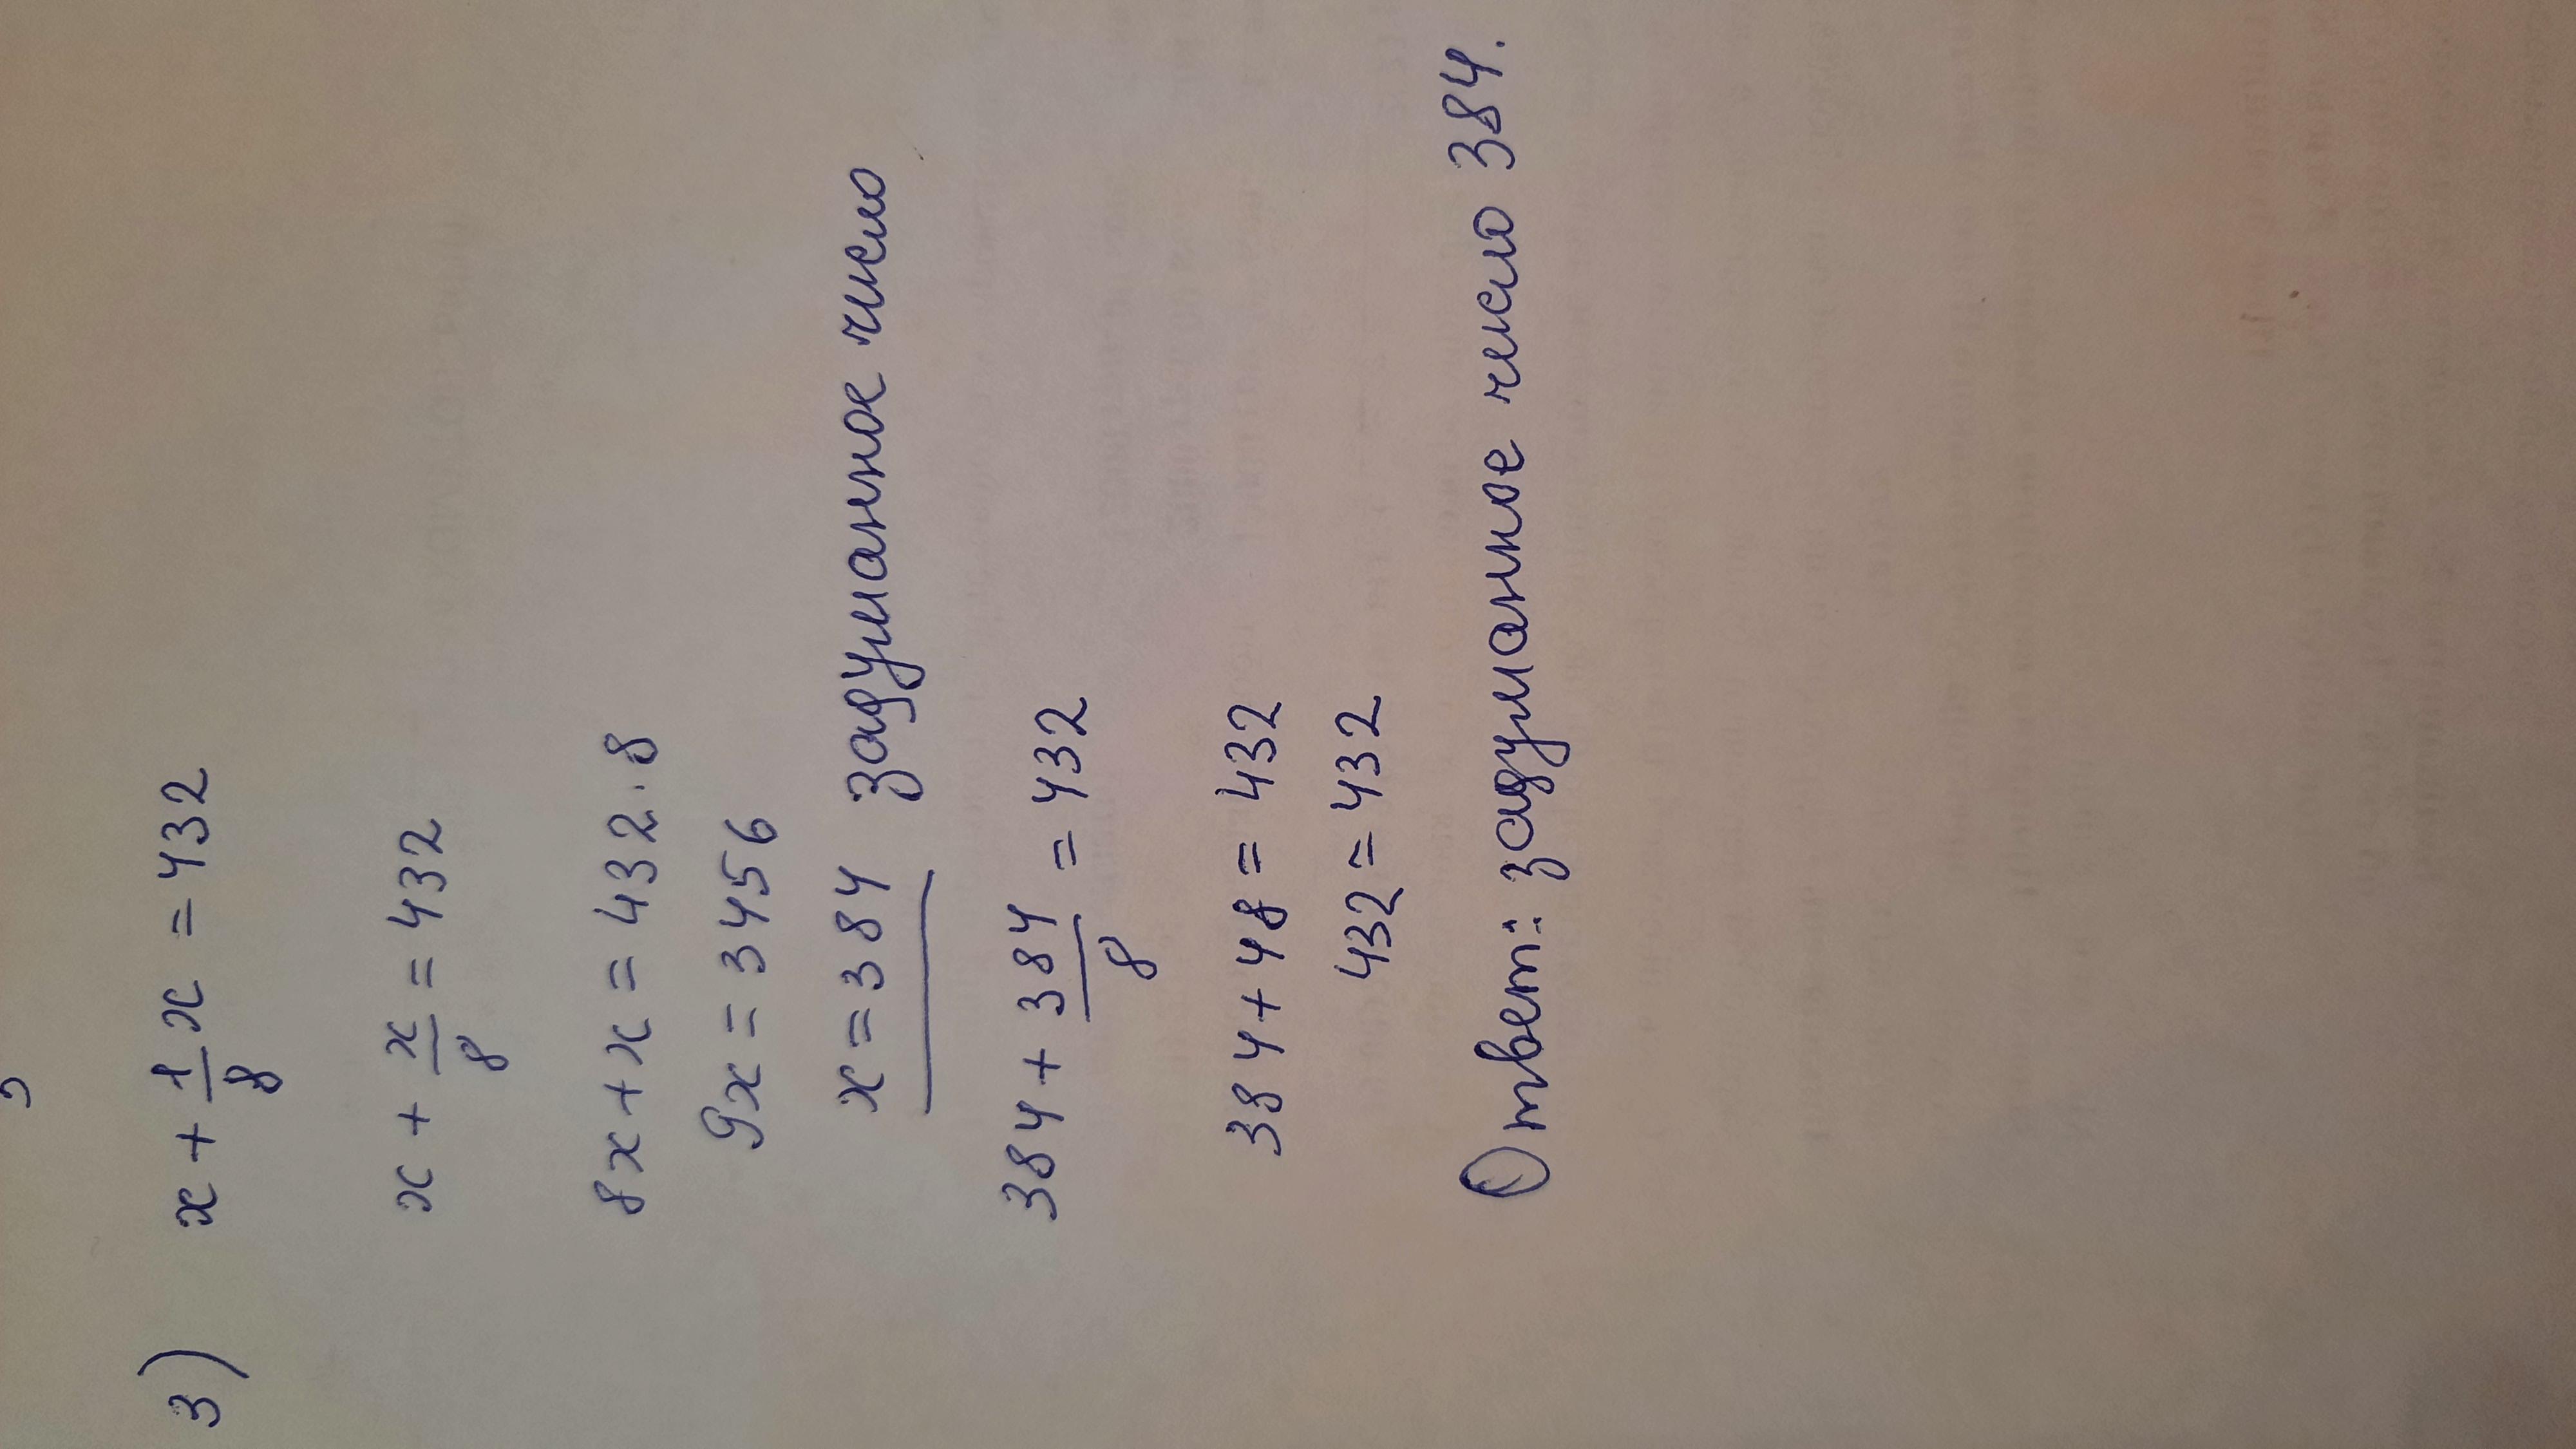 3) x + 1/8 x = 432
x + x/8 = 432
8x + x = 432 · 8
9x = 3456
x = 384 задуманное число
384 + 384/8 = 432
384 + 48 = 432
432 = 432
Ответ: задуманное число 384.